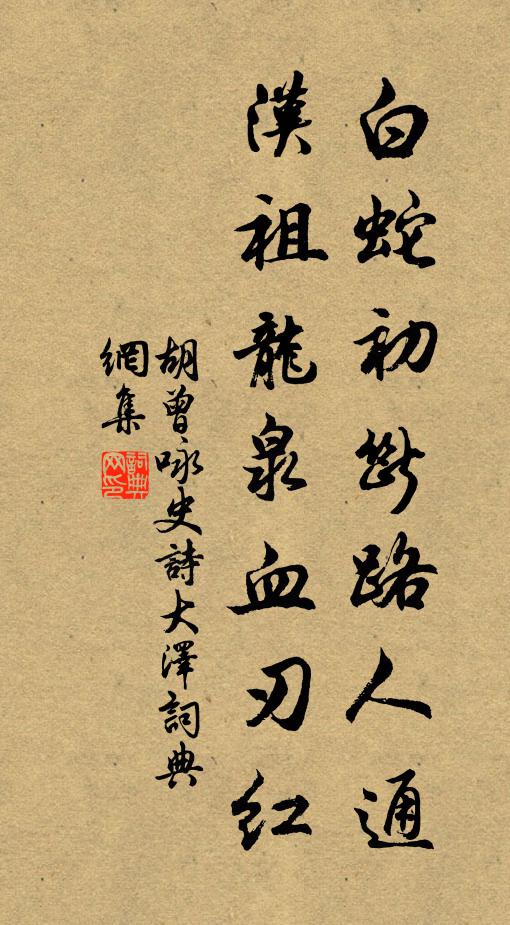 白蛇初斷路人通
漢祖龍泉血刃紅
胡曾咏史詩大澤詞典
網集
詞典
网印